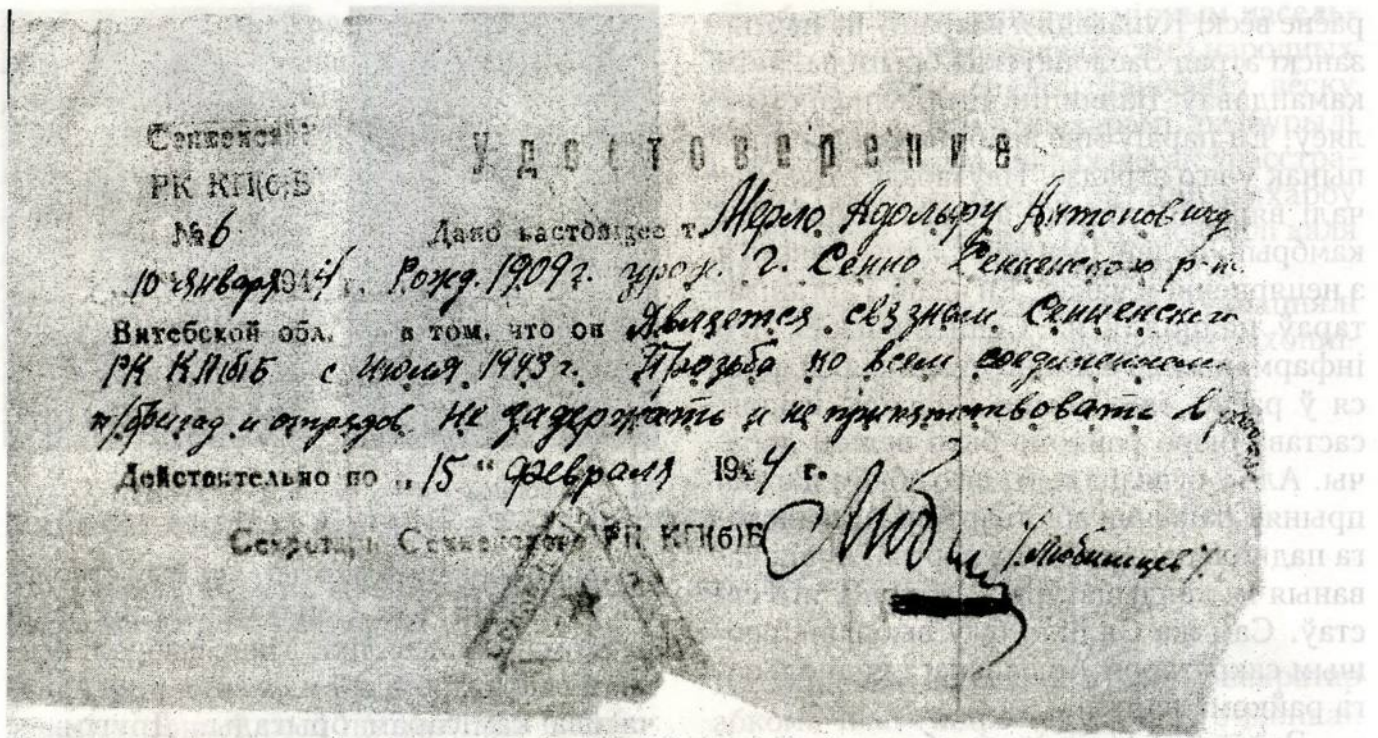 Сенненский
РК КП(б)Б
Удостоверение
№ 6
Дано настоящее т. Мерло Адольфу Антоновичу
10 января 1944 г. Рожд. 1909 г. урож. г. Сенно Сенненского р-на
Витебской обл. в том, что он является связным Сенненского
РК КП(б)Б с июля 1943 г. Прозьба по всем соединениям
п/бригад и отрядов не задержать и не припятствовать в
Действительно по „15“ февраля 1944 г.
Секретарь Сенненского РК КП(б)Б